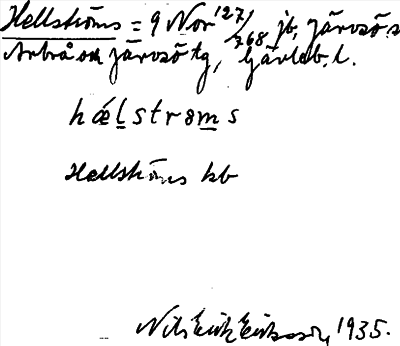 Hellströms = 9 Nor 127/768 jb, Järvsö s
Arbrå och Järvsö tg, Gävleb. l.
hǽlstrøms
Hellströms kb
Nils Erik Eriksson, 1935.